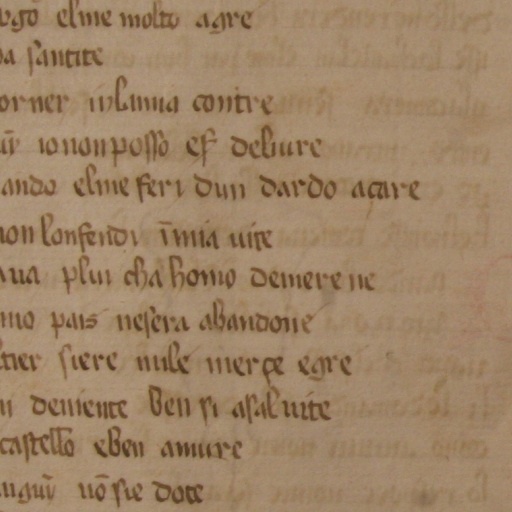 elme molto agre
santite
contre
io non posso eẜ deliure
ando elme feri dun dardo açare
non lonfendi ĩ mia uite
plui cha homo de mere ne
mio pais ne sera abandone
tier siere mile merçe egre
de niente ben si asaluite
castello eben amure
nõ sie dote